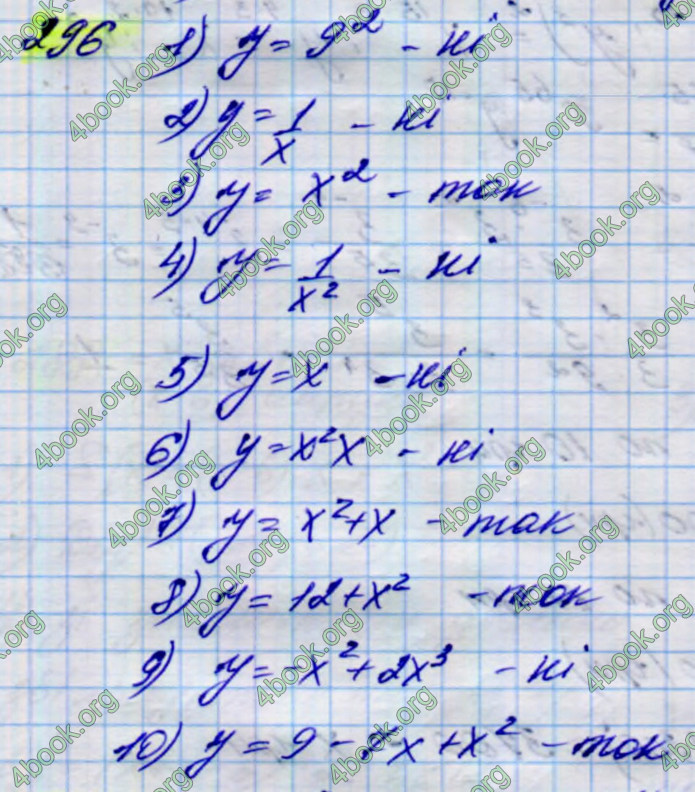 296 1) y = 9² - ні
2) y = 1/x - ні
3) y = x² - так
4) y = 1/x² - ні
5) y = x - ні
6) y = x²x - ні
7) y = x² + x - так
8) y = 12 + x² - так
9) y = -x² + 2x³ - ні
10) y = 9 - 5x + x² - так
4book.org